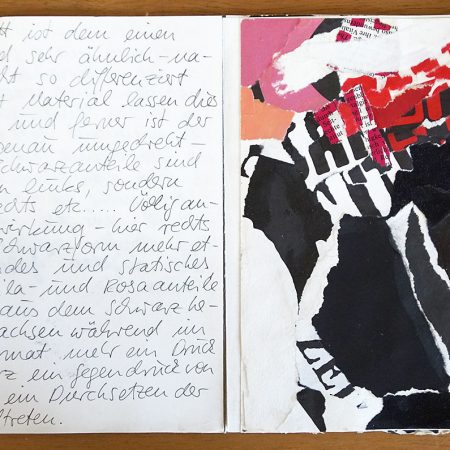 tt ist dem einen
d sehr ähnlich – na-
ht so differenziert
t Material lassen dies
und ferner ist der
enau umgedreht –
schwarzanteile sind
n links, sondern
echts etc..... Völlig an-
werkung – hier rechts
schwarzform mehr et-
ndes und statisches
ila- und Rosaanteile
aus dem Schwarz he-
achsen während im
rmat mehr ein Druck
rz ein gegendruck von
ein Durchsetzen der
ftreten.